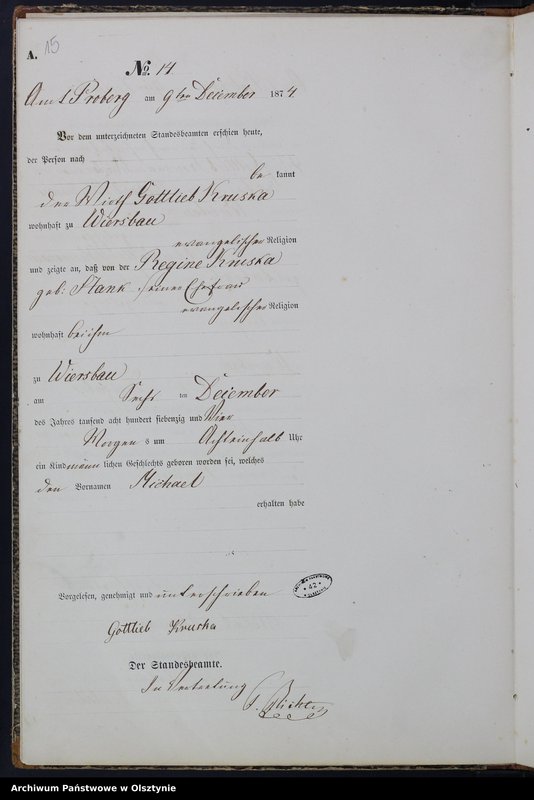 A. 15
No. 14
Amt Proberg am 9ten Deiember 1874
Vor dem unterzeichneten Standesbeamten erschien heute,
der Person nach
be kannt
der Wirth Gottlieb Kruska
wohnhaft zu Wiersbau
evangelischer Religion
und zeigte an, daß von der Regine Kruska
geb: Stank, seiner Ehefrau
evangelischer Religion
wohnhaft bei ihm
zu Wiersbau
am Sechs ten Deiember
des Jahres tausend acht hundert siebenzig und Vier
Morgen s um Achteinhalb Uhr
ein Kind männ lichen Geschlechts geboren worden sei, welches
den Vornamen Michael
erhalten habe
Vorgelesen, genehmigt und unterschrieben
42
Gottlieb Kruska
Der Standesbeamte.
In Vertretung
Archiwum Państwowe w Olsztynie